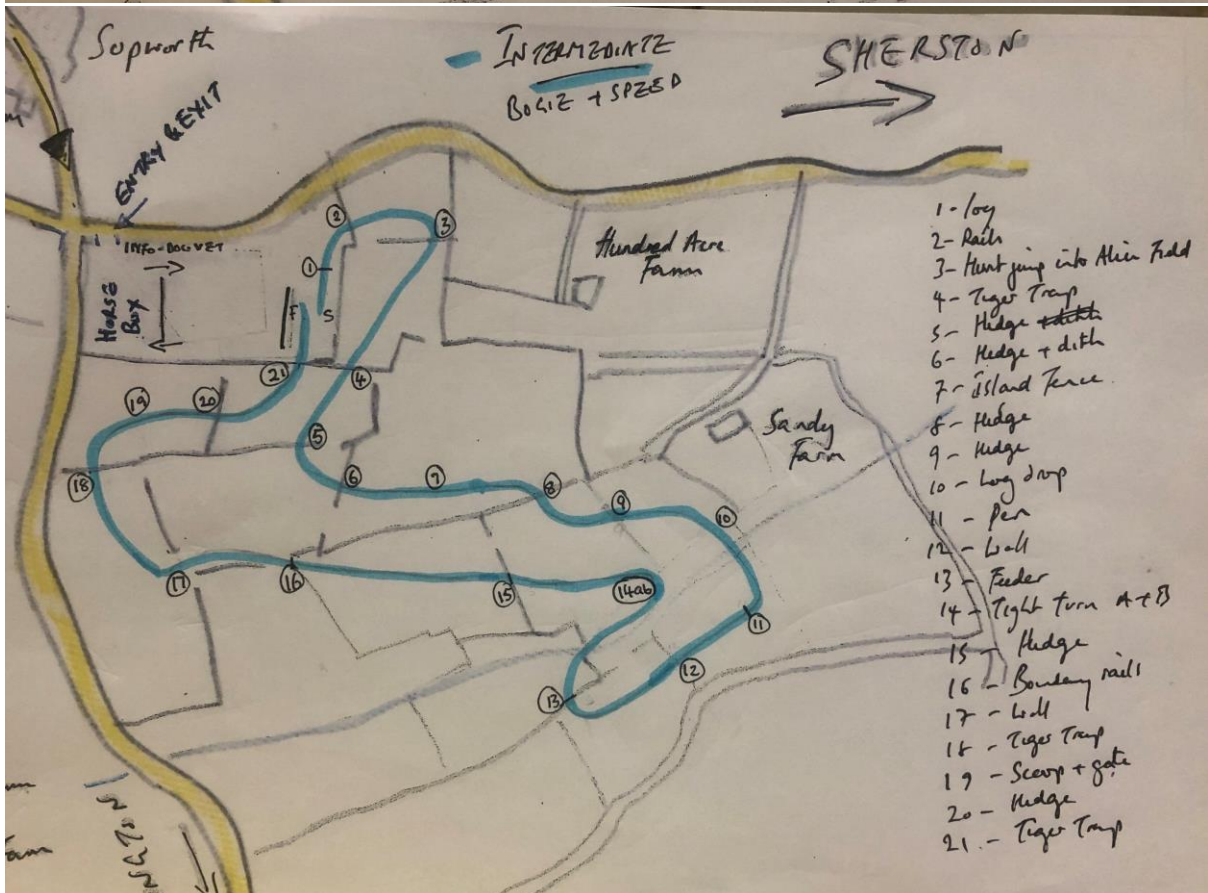 Sopworth
INTERMEDIATE
BOGIE + SPEED
SHERSTON
ENTRY & EXIT
INFO-BOGIVET
HORSE
BOX
Hundred Acre
Farm
Sandy
Farm
F
S
1
2
3
4
5
6
7
8
9
10
11
12
13
14ab
15
16
17
18
19
20
21
1 - log
2 - Rails
3 - Hunt jump into Alien Field
4 - Tiger Trap
5 - Hedge
6 - Hedge + dith
7 - island Fence
8 - Hedge
9 - Hedge
10 - Log drop
11 - Pen
12 - Wall
13 - Feeder
14 - Tight turn A + B
15 - Hedge
16 - Boundary rails
17 - Wall
18 - Tiger Trap
19 - Scoop + gate
20 - Hedge
21 - Tiger Trap
NGTON